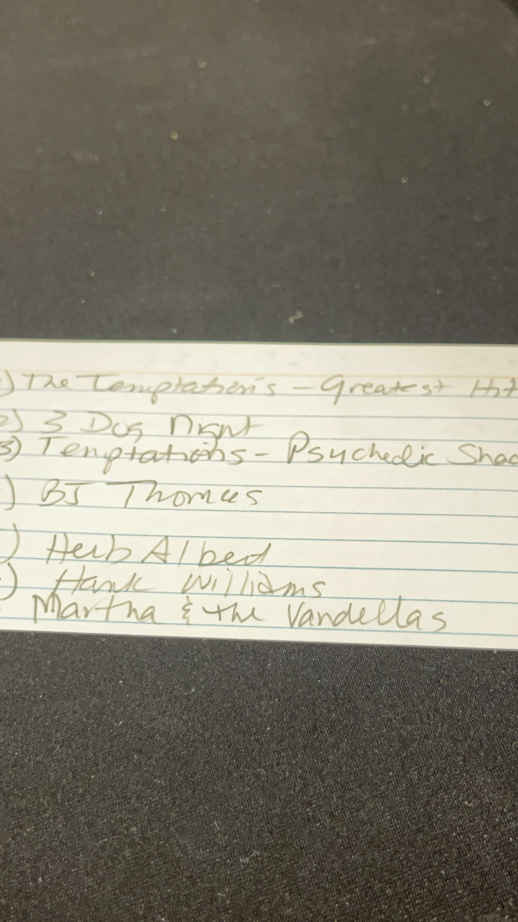 ) The Temptations - Greatest Hit
2) 3 Dog Night
3) Temptations - Psychedlic Shad
) BJ Thomas
) Herb Albed
) Hank Williams
Martha & the Vandellas